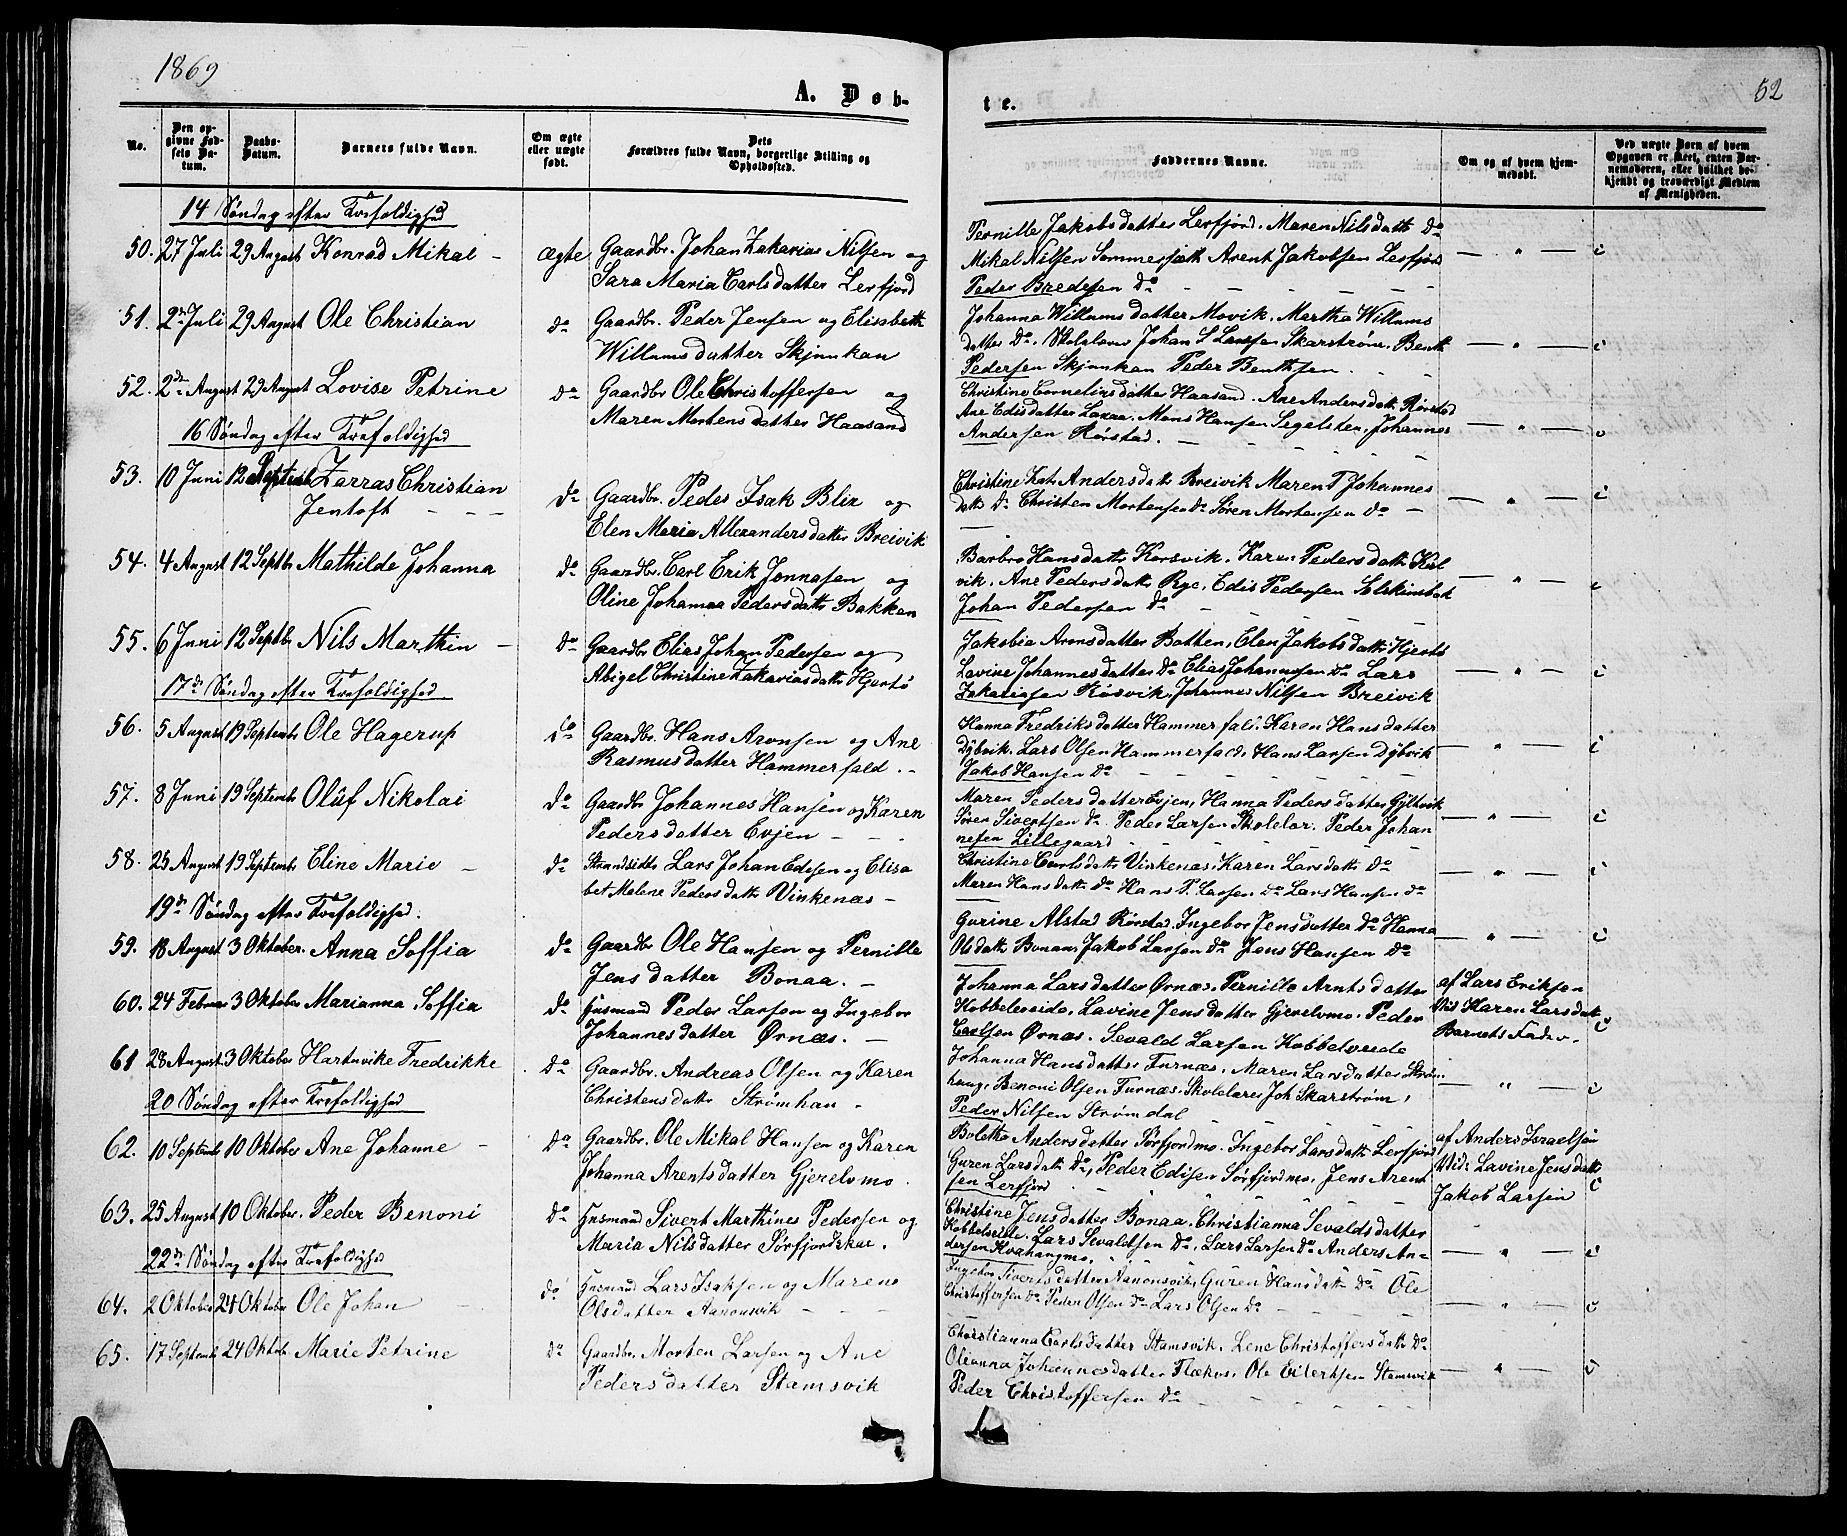 1869
A. Døb-
te.
52
No.
Den op-
givne Fød-
sels Da-
tum.
Daabs-
Datum.
Barnets fulde Navn.
Om ægte
eller uægte
født.
Dets
Forældres fulde Navn, borgerlige Stilling og
Opholdssted.
Faddernes Navne.
Om og af hvem hjem-
medøbt.
Ved uægte Børn af hvem
Opgaven er skeet, enten Bar-
nemoderen, eller hvilket be-
kjendt og troværdigt Medlem
af Menigheden.
14 Søndag efter Trefoldighed
50. 27 Juli 29 August Konrad Mikal - ægte
Gaardbr. Johan Zakarias Nilsen og
Sara Maria Carlsdatter Lerfjord
Pernille Jakobsdatter Lerfjord. Maren Nilsdatt do
Mikal Nilsen Sommersæth Arent Jakobsen Lerfjord
Peder Bredesen do
51. 2 Juli 29 August Ole Christian do
Gaardbr. Peder Jensen og Elisabeth
Willumsdatter Skjunkan
Johanna Willumsdatter Movik. Martha Willums
datter do. Skolelærer Johan S Larsen Skarstrøm, Benth
Pedersen Skjunkan Peder Benthsen
52. 2de August 29 August Lovise Petrine do
Gaardbr Ole Christoffersen og
Maren Mortensdatter Haasand
Christine Corneliusdatter Haasand. Ane Andersdatt Rørstad
Ane Edisdatter Laxaa. Mons Hansen Segelsten, Johannes
Andersen Rørstad.
16 Søndag efter Trefoldighed
53. 10 Juni 12 Septemb Zarras Christian
Jentoft do
Gaardbr. Peder Isak Blix og
Elen Maria Allexandersdatter Breivik
Christine Kat. Andersdatt Breivik Maren T Johannes
datt do Christen Mortensen do Søren Mortensen do
54. 4 August 12 Septbr Mathilde Johanna do
Gaardbr. Carl Erik Jonnasen og
Oline Johanna Pedersdatt Bakken
Barbro Hansdatt Korsvik. Karen Pedersdatt Kul
vik. Ane Pedersdatt Rye, Edis Pedersen Solskinsbak
Johan Pedersen do
55. 6 Juni 12 Septbr Nils Marthin - do
Gaardbr Elias Johan Pedersen og
Abigel Christine Zakariasdatt Hjertø
Jakobia Aronsdatter Botten, Elen Jakobsdatt Hjertø
Lavine Johannesdatter do Elias Johannesen do Lars
Zakariasen Røsvik, Johannes Nilsen Breivik
17de Søndag efter Trefoldighed
56. 5 August 19 Septembr Ole Hagerup do
Gaardbr. Hans Aronsen og Ane
Rasmusdatter Hammerfald.
Hanna Fredriksdatter Hammerfald, Karen Hansdatter
Dybvik. Lars Olsen Hammerfald. Hans Larsen Dybvik
Jakob Hansen do
57. 8 Juni 19 Septembr Oluf Nikolai do
Gaardbr Johannes Hansen og Karen
Pedersdatter Evjen
Maren Pedersdatter Evjen, Hanna Pedersdatter Gyltvik
Søren Sivertsen do Peder Larsen Skolelær. Peder Johan
nesen Lillegaard
58. 25 August 19 Septembr Eline Marie - do
Strandsidder Lars Johan Edisen og Elisa
bet Malene Pedersdatt Vinkenæs -
Christine Carlsdatt Vinkenæs, Karen Larsdatt do
Maren Hansdatt do Hans P. Larsen do Lars Hansen do
19de Søndag efter Trefoldighed.
59. 18 August 3 Oktober. Anna Soffia do
Gaardbr Ole Hansen og Pernille
Jensdatter Bonaa.
Gurine Alstad Rørstad, Ingebor Jensdatter do Hanna
Olsdatt Bonaa, Jakob Larsen do Jens Hansen do
60. 24 Februar 3 Oktober Marianna Soffia do
Husmand Peder Larsen og Ingebor
Johannesdatter Ørnæs.
Johanna Larsdatter Ørnæs. Pernille Arntsdatter
Kobbelveide, Lavine Jensdatter Gjerelvmo. Peder
Carlsen Ørnæs. Sevald Larsen Kobbelveide
af Lars Eriksen
Vis Karen Larsdatt
Barnets Fader
61 28 August 3 Oktober Hartvikke Fredrikke do
Gaardbr. Andreas Olsen og Karen
Christensdatt Strømhau
Johanna Hansdatter Furnæs, Maren Larsdatter Strøm
haug, Benoni Olsen Furnæs, Skolelærer Joh Skarstrøm,
Peder Nilsen Strømdal
20 Søndag efter Trefoldighed
62. 10 Septembr 10 Oktober Ane Johanne - do
Gaardbr. Ole Mikal Hansen og Karen
Johanna Arentsdatter Gjerelvmo.
Boletha Andersdatter Sørfjordmo. Ingebor Larsdatt Lerfjord
Guren Larsdatt do, Peder Edisen Sørfjordmo, Jens Arent
sen Lerfjord
af Anders Israelsen
Vid: Lavine Jensdatt
Jakob Larsen
63. 25 August 10 Oktober. Peder Benoni do
Husmand Sivert Marthines Pedersen og
Maria Nilsdatter Sørfjordskar.
Christine Jensdatter Bonaa. Christianna Sevaldsdatter
Kobbelveide. Lars Sevaldsen do, Lars Larsen do Anders An-
dersen Kvahaugmo.
22de Søndag efter Trefoldighed
64. 2 Oktober 24 Oktobr Ole Johan - do
Husmand Lars Isaksen og Maren
Olsdatter Aanonsvik
Ingebor Sivertsdatter Aanonsvik, Guren Hansdatt do Ole
Christoffersen do Peder Olsen do Lars Olsen do
65. 17 Septemb 24 Oktob. Marie Petrine do
Gaardbr. Morten Larsen og Ane
Pedersdatter Stamsvik
Christianna Carlsdatter Stamsvik. Lene Christoffersdatt do
Olianna Johannesdatter Flækos, Ole Eilertsen Stamsvik
Peder Christoffersen do